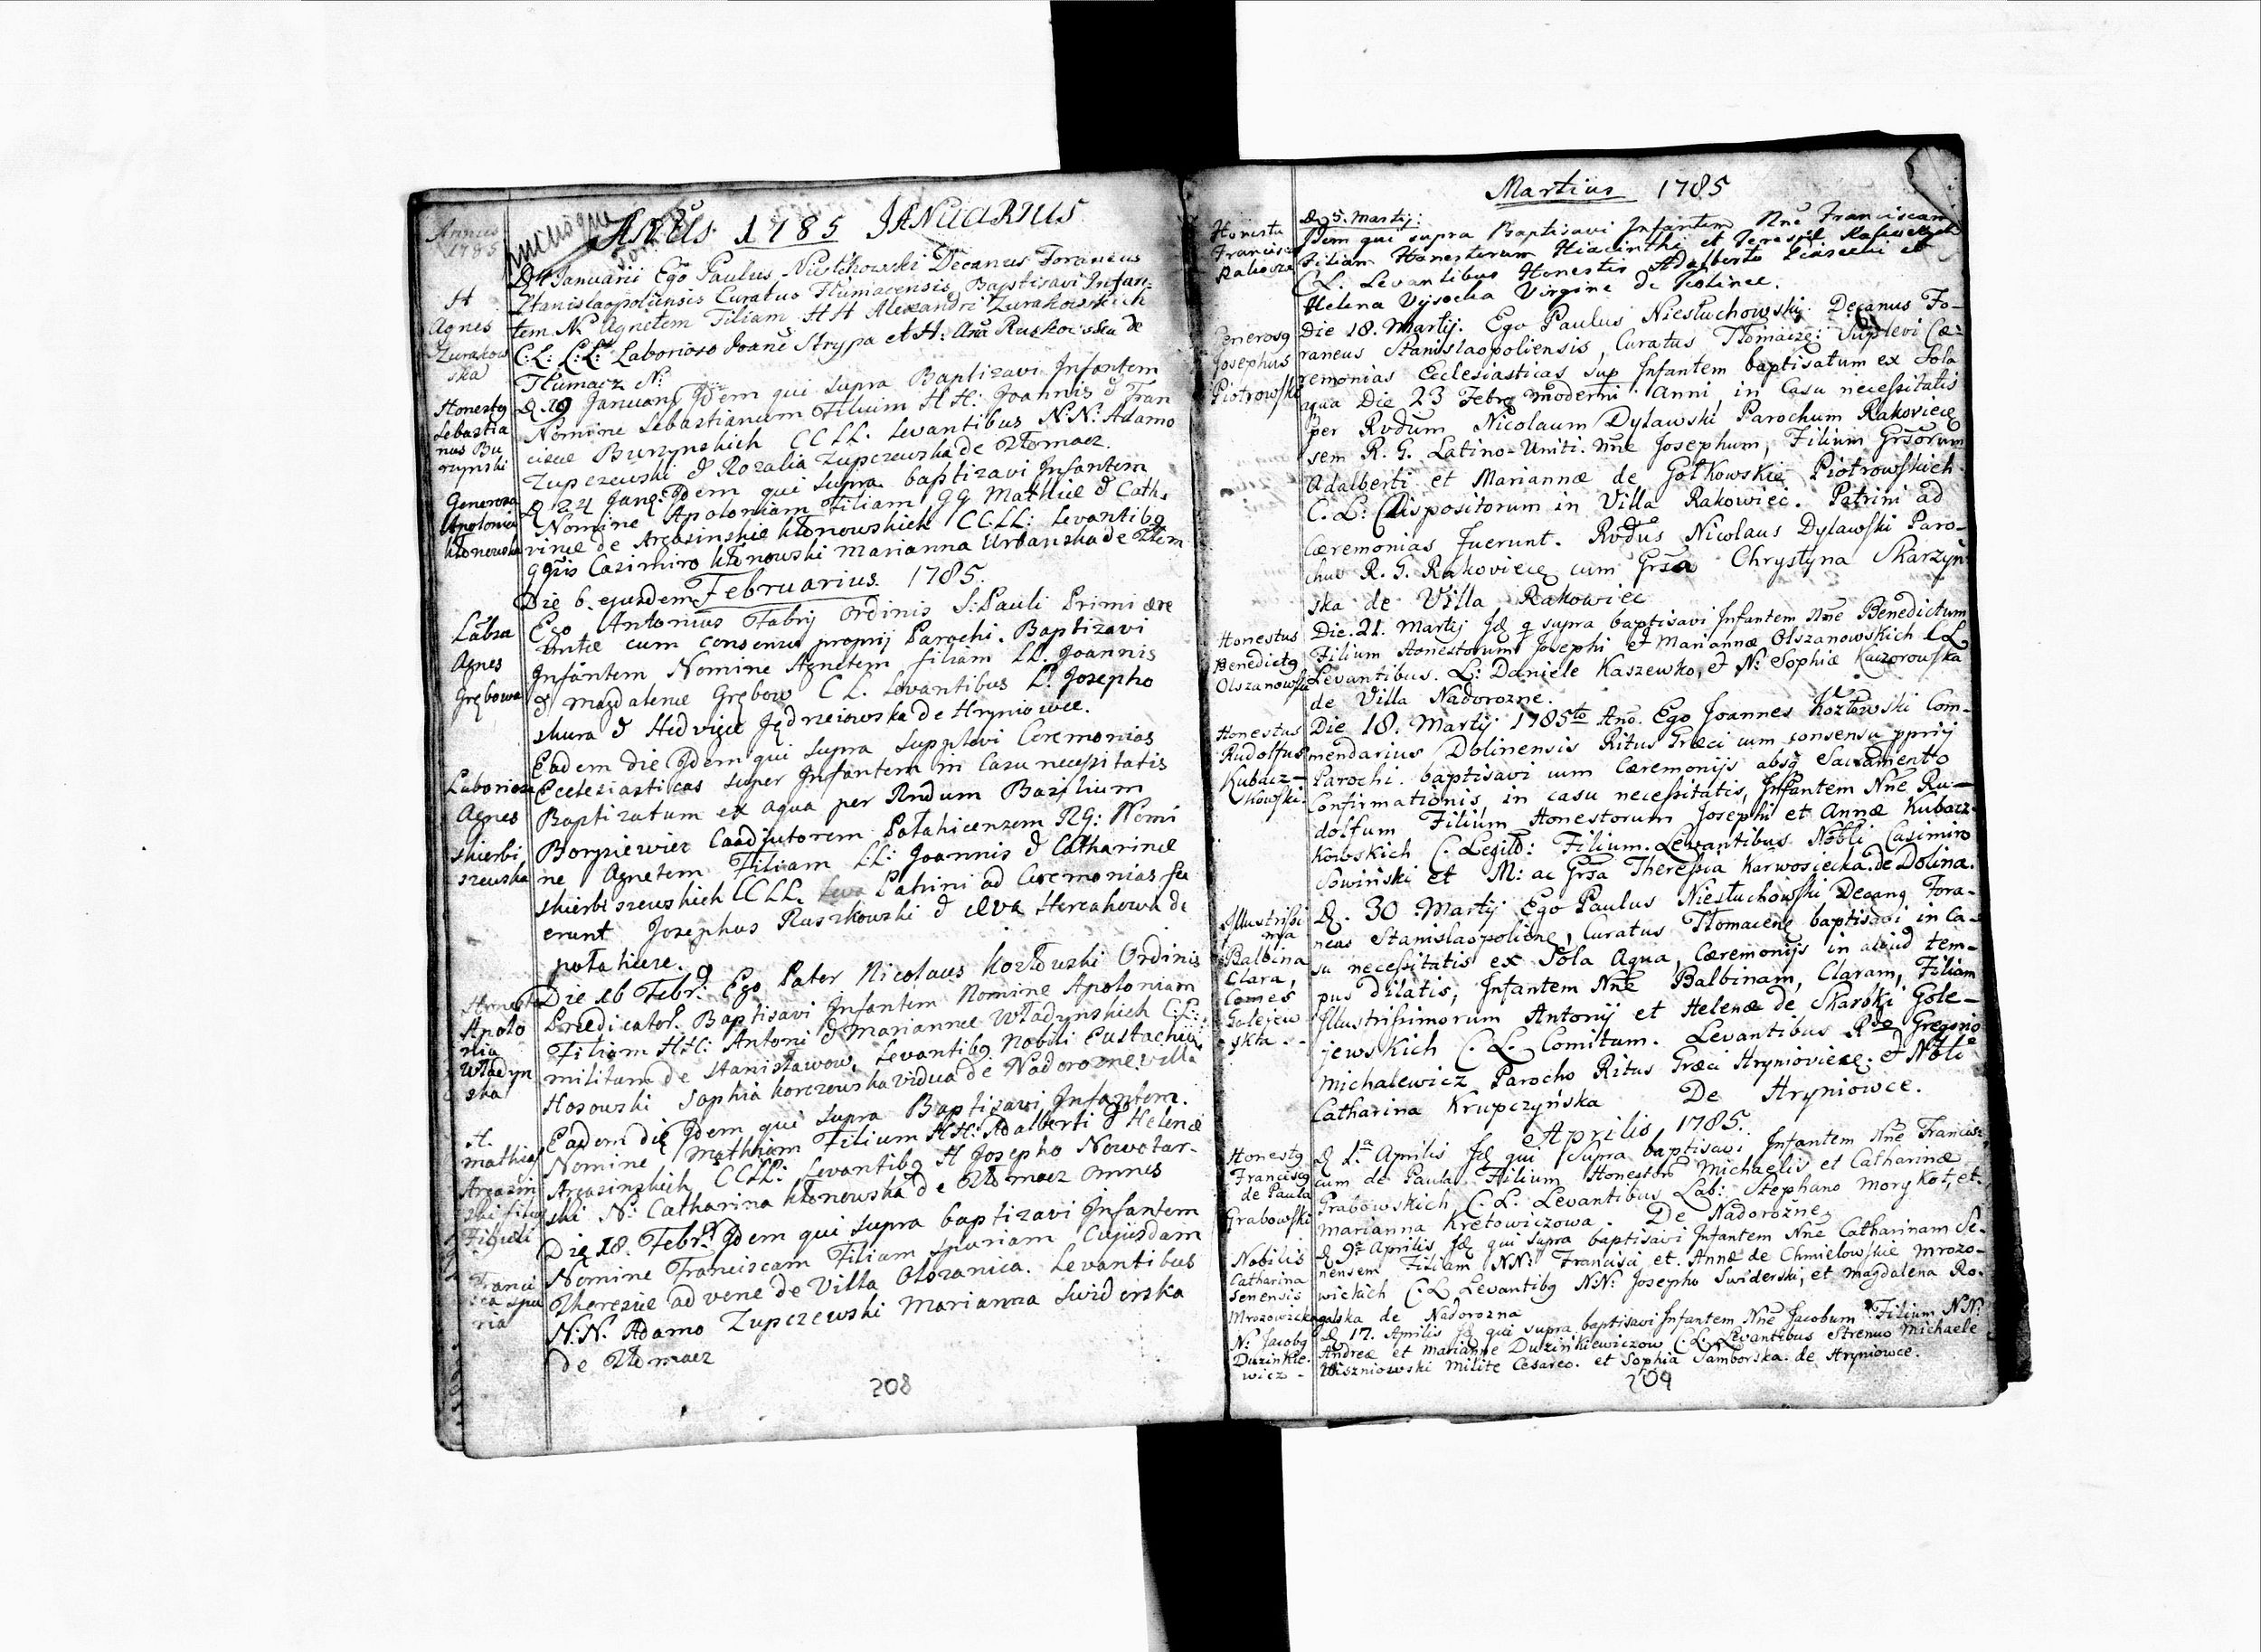 Annus
1785
ANUS 1785 JANUARIUS
Januarii Ego Paulus Niestchowski Decanus Foraneus
Stanislaopoliensis Curatus Tłumacensis Baptisavi Infan:
H
Agnes
Zurakow
ska
tem Ne Agnetem Filiam HH Alexandri Zurakowskich
C:L: C:L: Laborioso Joane Strypa et H: Ana Ruskowska de
Tłumacz
Honestg
Sebastia
nus Bu
rzynski
D. 19 Januarij Idem qui supra Baptizavi Infantem
Nomine Sebastianum Filium HH: Joannis & Fran
cisce Burzynskich CCLL. Levantibus N:N: Adamo
Zupczewski & Rozalia Zupczewska de Tłomacz.
Generosa
Apolonia
Kłonowska
D 24 Janr: Idem qui supra baptizavi Infantem
Nomine Apoloniam Filiam GG Mathiæ & Catha
rinæ de Arcasinskie Kłonowskich CCLL: Levantibg
Casimiro Kłonowski Marianna Urbanska de Tłom
Februarius 1785.
Die 6. ejusdem
Labsa
Agnes
Grębowa
Ego Antonius Fabrij Ordinis S: Pauli Primi ære
mitæ cum consensu proprij Parochi. Baptizavi
Infantem Nomine Agnetem filiam LL. Joannis
& Magdalenæ Grębow C L. Levantibus L: Josepho
skura & Hedvigæ Jędrzeiowska de Hryniowce.
Laboriosa
Agnes
skierbi
szewska
Eadem die Idem qui supra supplevi Ceremonias
Ecclesiasticas super Infantem in Casu necessitatis
Baptizatum ex aqua per Rndum Basilium
Borysiewicz Coadjutorem Potahicensem RG: Nomi
ne Agnetem Filiam LL: Joannis & Catharinæ
skierbiszewskich CCLL. Patrini ad Ceremonias fu
erunt Josephus Ruszkowski & Eva Hercahowa de
potahicze.
Honesta
Apolo
nia
Władyn
ska
Die 16 Febr: Ego Pater Nicolaus Kozłowski Ordinis
Predicator. Baptisavi Infantem Nomine Apoloniam
Filiam HH: Antoni & Mariannæ Władynskich C:L:
militum de Stanisławow, Levantibg Nobili Eustachio
Hosowski Sophia korczewska vidua de Nadorozne villa
H.
Mathias
Arcasin
ski filius
Figuli
Eadem die Idem qui supra Baptizavi Infantem.
Nomine Mathiam Filium HH: Adalberti & Helenæ
Arcasinskich CCLL: Levantibg H Josepho Nowotar-
ski N: Catharina Kłonowska de Tłomacz omnes
Franci
sca spu
ria
Die 18. Febr: Idem qui supra baptizavi Infantem
Nomine Franciscam Filiam spuriam Cujusdam
Theresiæ ad venæ de Villa Olszanica. Levantibus
N:N: Adamo Zupczewski Marianna Swiderska
de Tłomacz
208
Martius 1785
Honesta
Francisca
D 5. Martij:
Idem qui supra Baptisavi Infantem Nne Franciscam
Filiam Honestorum Hiacinthi et Teresiæ
C.L. Levantibus Honestis Adalberto Piasecki et
Helena Vysocka Virgine de
Generosg
Josephus
Piotrowski
Die 18. Martij. Ego Paulus Niestuchowskij Decanus Fo-
raneus Stanislaopoliensis, Curatus Tłomacze: Suplevi Cæ-
remonias Ecclesiasticas sup Infantem baptisatum ex Sola
aqua Die 23 Febrg moderni Anni, in Casu necessitatis
per Rvdum Nicolaum Dylawski Parochum Rakoviecę
sem R. G. Latino-Uniti. Nne Josephum, Filium Grsorum
Adalberti et Mariannæ de Gołkowskie Piotrowskich
C. L: Dispositorum in Villa Rakowiec. Patrini ad
Cæremonias Fuerunt. Rvdus Nicolaus Dylawski Paro-
chus R. G. Rakoviecę cum Grsa Chrystyna Skarzyń
ska de Villa Rakowiec
Honestus
Benedictg
Olszanowski
Die. 21. Martij Id q supra baptisavi Infantem Nne Benedictum
Filium Honestorum Josephi et Mariannæ Olszanowskich CL
Levantibus. L: Daniele Kaszewko, et N: Sophiæ Kaczorowska
de Villa Nadorozne.
Honestus
Rudolfus
Kubacz-
kowski.
Die 18. Martij 1785to Ano. Ego Joannes Kozłowski Com-
mendarius Dolinensis Ritus Græci cum consensu pprij
Parochi. baptisavi cum Cæremonijs absq Sacramento
Confirmationis, in casu necessitatis, Infantem Nne Ru-
dolfum Filium Honestorum Josephi et Annæ Kubacz-
kowskich C. Legitb: Filium. Levantibus Nobli Casimiro
Sowiński et M: ac Grsa Theressia Karwosiecka. de Dolina.
Illustrissi
ma
Balbina
Clara,
Comes
Golejew
ska - -
D. 30 Martij Ego Paulus Niestuchowski Decang Fora-
neus Stanislaopoliene, Curatus Tłomacenę baptisavi in Ca-
su necessitatis ex Sola Aqua, Cæremonijs in aliud tem-
pus dilatis, Infantem Nne Balbinam, Claram, Filiam
Illustrissimorum Antonij et Helenæ de Skarbki Gole-
jewskich C. L. Comitum. Levantibus Rdo Gregorio
Michalewicz Parocho Ritus Græci Hryniovieze. et Nobli
Catharina Krupczyńska De Hryniowce.
Aprilis 1785.
Honestg
Franciscg
de Paula
Grabowski
D 1.a Aprilis Id qui Supra baptisavi Infantem Nne Francis-
cum de Paula Filium Honestor Michaelis et Catharinæ
Grabowskich C. L. Levantibus Lab: Stephano Mory Kot, et.
Marianna Kretowiczowa. De Nadorozne
Nobilis
Catharina
Senensis
Mrozowicka
D 9a Aprilis Id qui supra baptisavi Infantem Nne Catharinam Se-
nensem Filiam NN: Francisci et. Annæ de Chmielowskie Mrozo-
wickich C.L Levantibg N:N: Josepho Swiderski, et Magdalena Ro-
galska de Nadorozna
N: Jacobg
Duzinkie-
wicz -
D 17. Aprilis Id qui supra baptisavi Infantem Nne Jacobum Filium N:N:
Andreæ et Marianne Duzinkiewiczow C. L. Levantibus Strenuo Michaele
Wiszniowski Milite Cesareo. et Sophia Samborska. de Hryniowce.
209